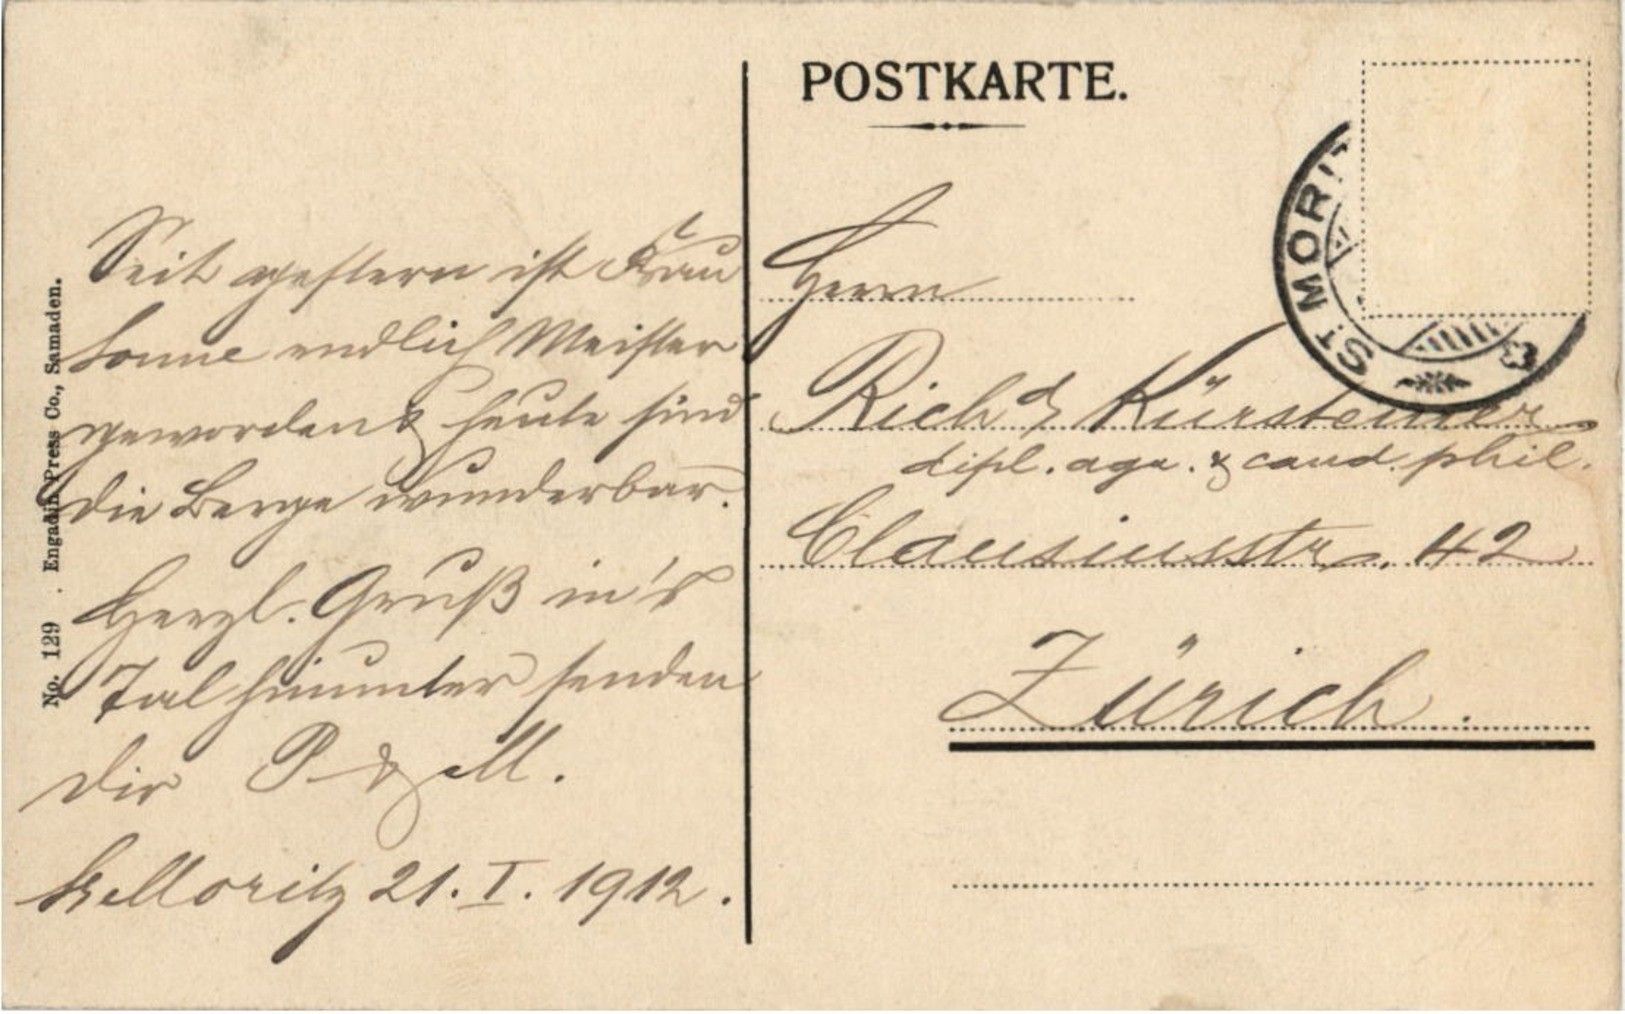 No. 129 . Engadin Press Co., Samaden.
Seit gestern ist Frau
Sonne endlich Meister
geworden & heute sind
die Berge wunderbar.
Herzl. Gruß in's
Tal hinunter senden
Dir P & M.
St. Moritz 21. I. 1912.
POSTKARTE.
ST MORIT
Herrn
Rich Kürsteiner
dipl. agr. & cand. phil.
Clausiusstr. 42
Zürich.